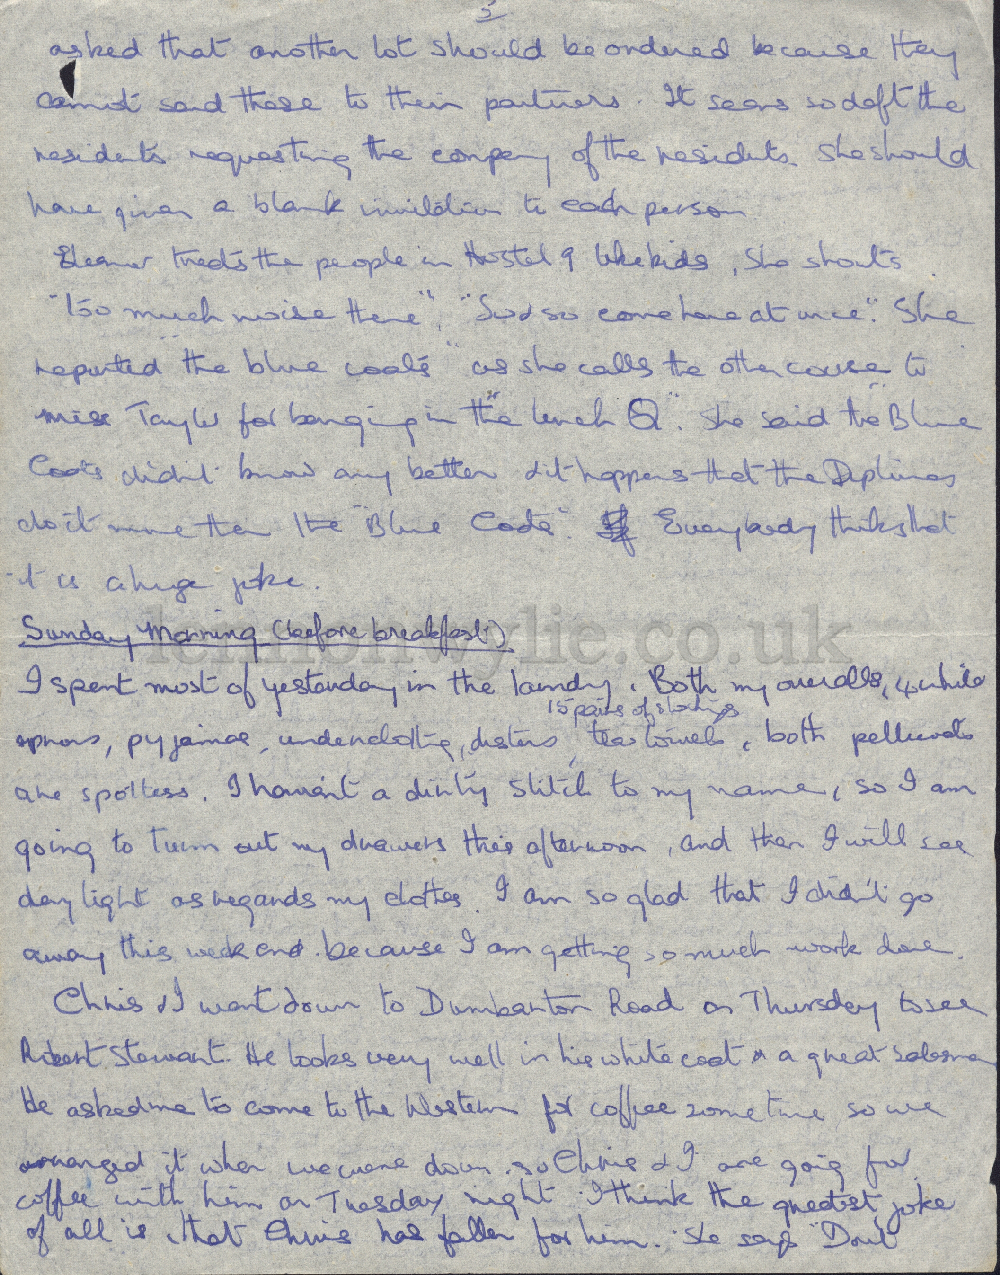 3
asked that another lot should be ordered because they
cannot send these to their partners. It seems so daft the
residents requesting the company of the residents. She should
have given a blank invitation to each person
Eleanor treats the people in Hostel 9 like kids, she shouts
"Too much noise there", "So & so come here at once". She
reported "the blue coats" as she calls the other course to
Miss Taylor for banging in the "lunch Q". She said the "Blue
Coats didn't know any better & it happens that the Diplomas
do it more than the "Blue Coats". Everybody thinks that
it is a huge joke.
Sunday Morning (before breakfast)
I spent most of yesterday in the laundry. Both my overalls, 4 white
15 pairs of stockings
aprons, pyjamas, underclothing, dusters, tea towels, both petticoats
are spotless. I haven't a dirty stitch to my name, so I am
going to turn out my drawers this afternoon, and then I will see
daylight as regards my clothes. I am so glad that I didn't go
away this weekend because I am getting so much work done.
Chris & I went down to Dumbarton Road on Thursday to see
Robert Stewart. He looks very well in his white coat & a great salesman
He asked me to come to the Western for coffee sometime so we
arranged it when we were down. so Chris & I are going for
coffee with him on Tuesday night. I think the greatest joke
of all is that Chris has fallen for him. She says "Don't
lennonwylie.co.uk